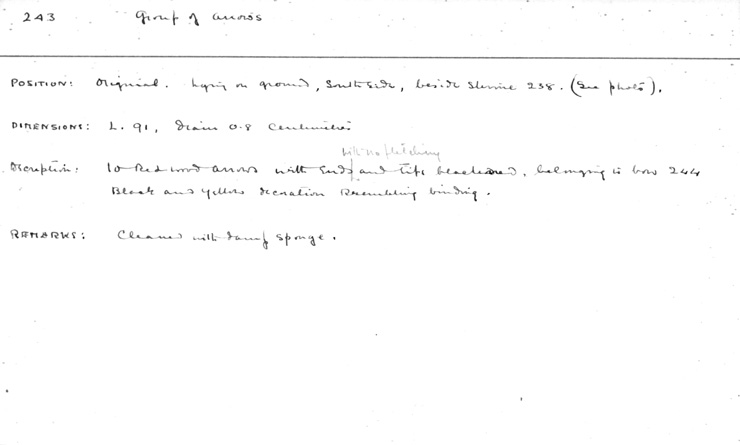 243 Group of arrows
POSITION: Original. Lying on ground, South side, beside Shrine 238. (See photo).
DIMENSIONS: L. 91, diam 0.8 Centimetres
with no fletching
Description: 10 Red wood arrows with ends and tips blackened, belonging to bow 244
Black and yellow decoration resembling binding.
REMARKS: Cleaned with damp sponge.